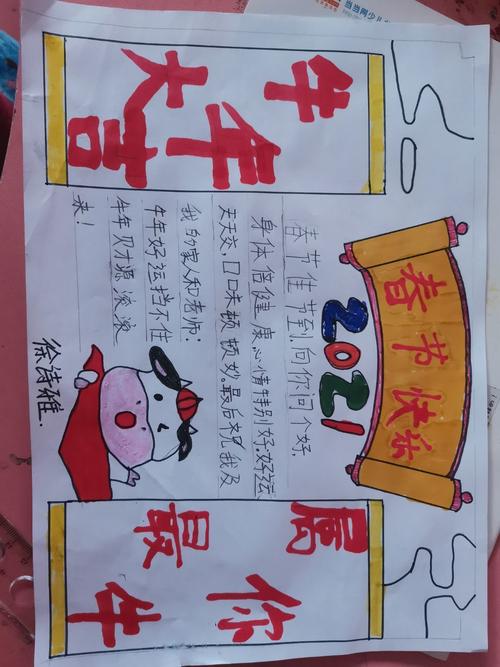 春节快乐
2021
牛年
大吉
春节佳节到,向你问个好,
身体倍健康,心情特别好.好运
天天交,口味顿顿妙.最后祝我及
我的家人和老师:
牛年好运挡不住
牛年财源滚滚
来!
属你
最牛
徐诗雅.
当当网少儿